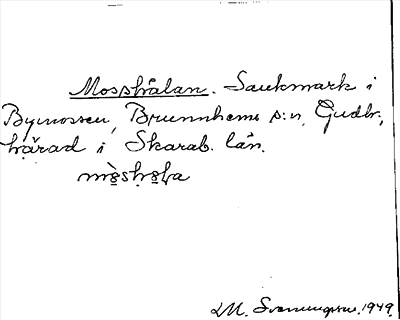 Mosshålan. Sankmark i
Bymossen, Brunnhems s:n, Gudh.
härad i Skarab. län.
LM. Svenungsson. 1949.